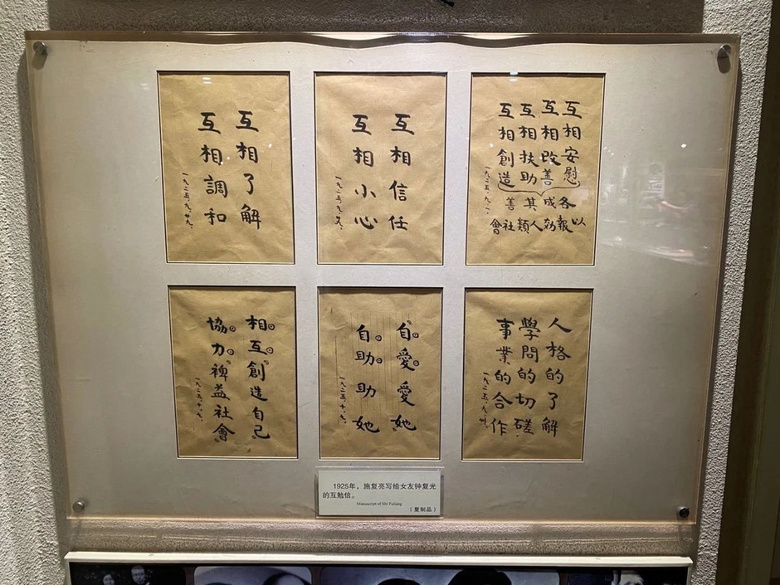 互相了解
互相調和
一九二五、九、廿九、
互相信任
互相小心
一九二五、九、
互相安慰
互相改善
互相扶助
互相創造
各成其善
以報効人類社會
一九二五、九、
相互創造自己
協力裨益社會
一九二五、十、
自愛愛她
自助助她
一九二五、十、
人格的了解
學問的切磋
事業的合作
一九二五、九、
1925年，施复亮写给女友钟复光
的互勉信。
Manuscript of Shi Fuliang
（复制品）